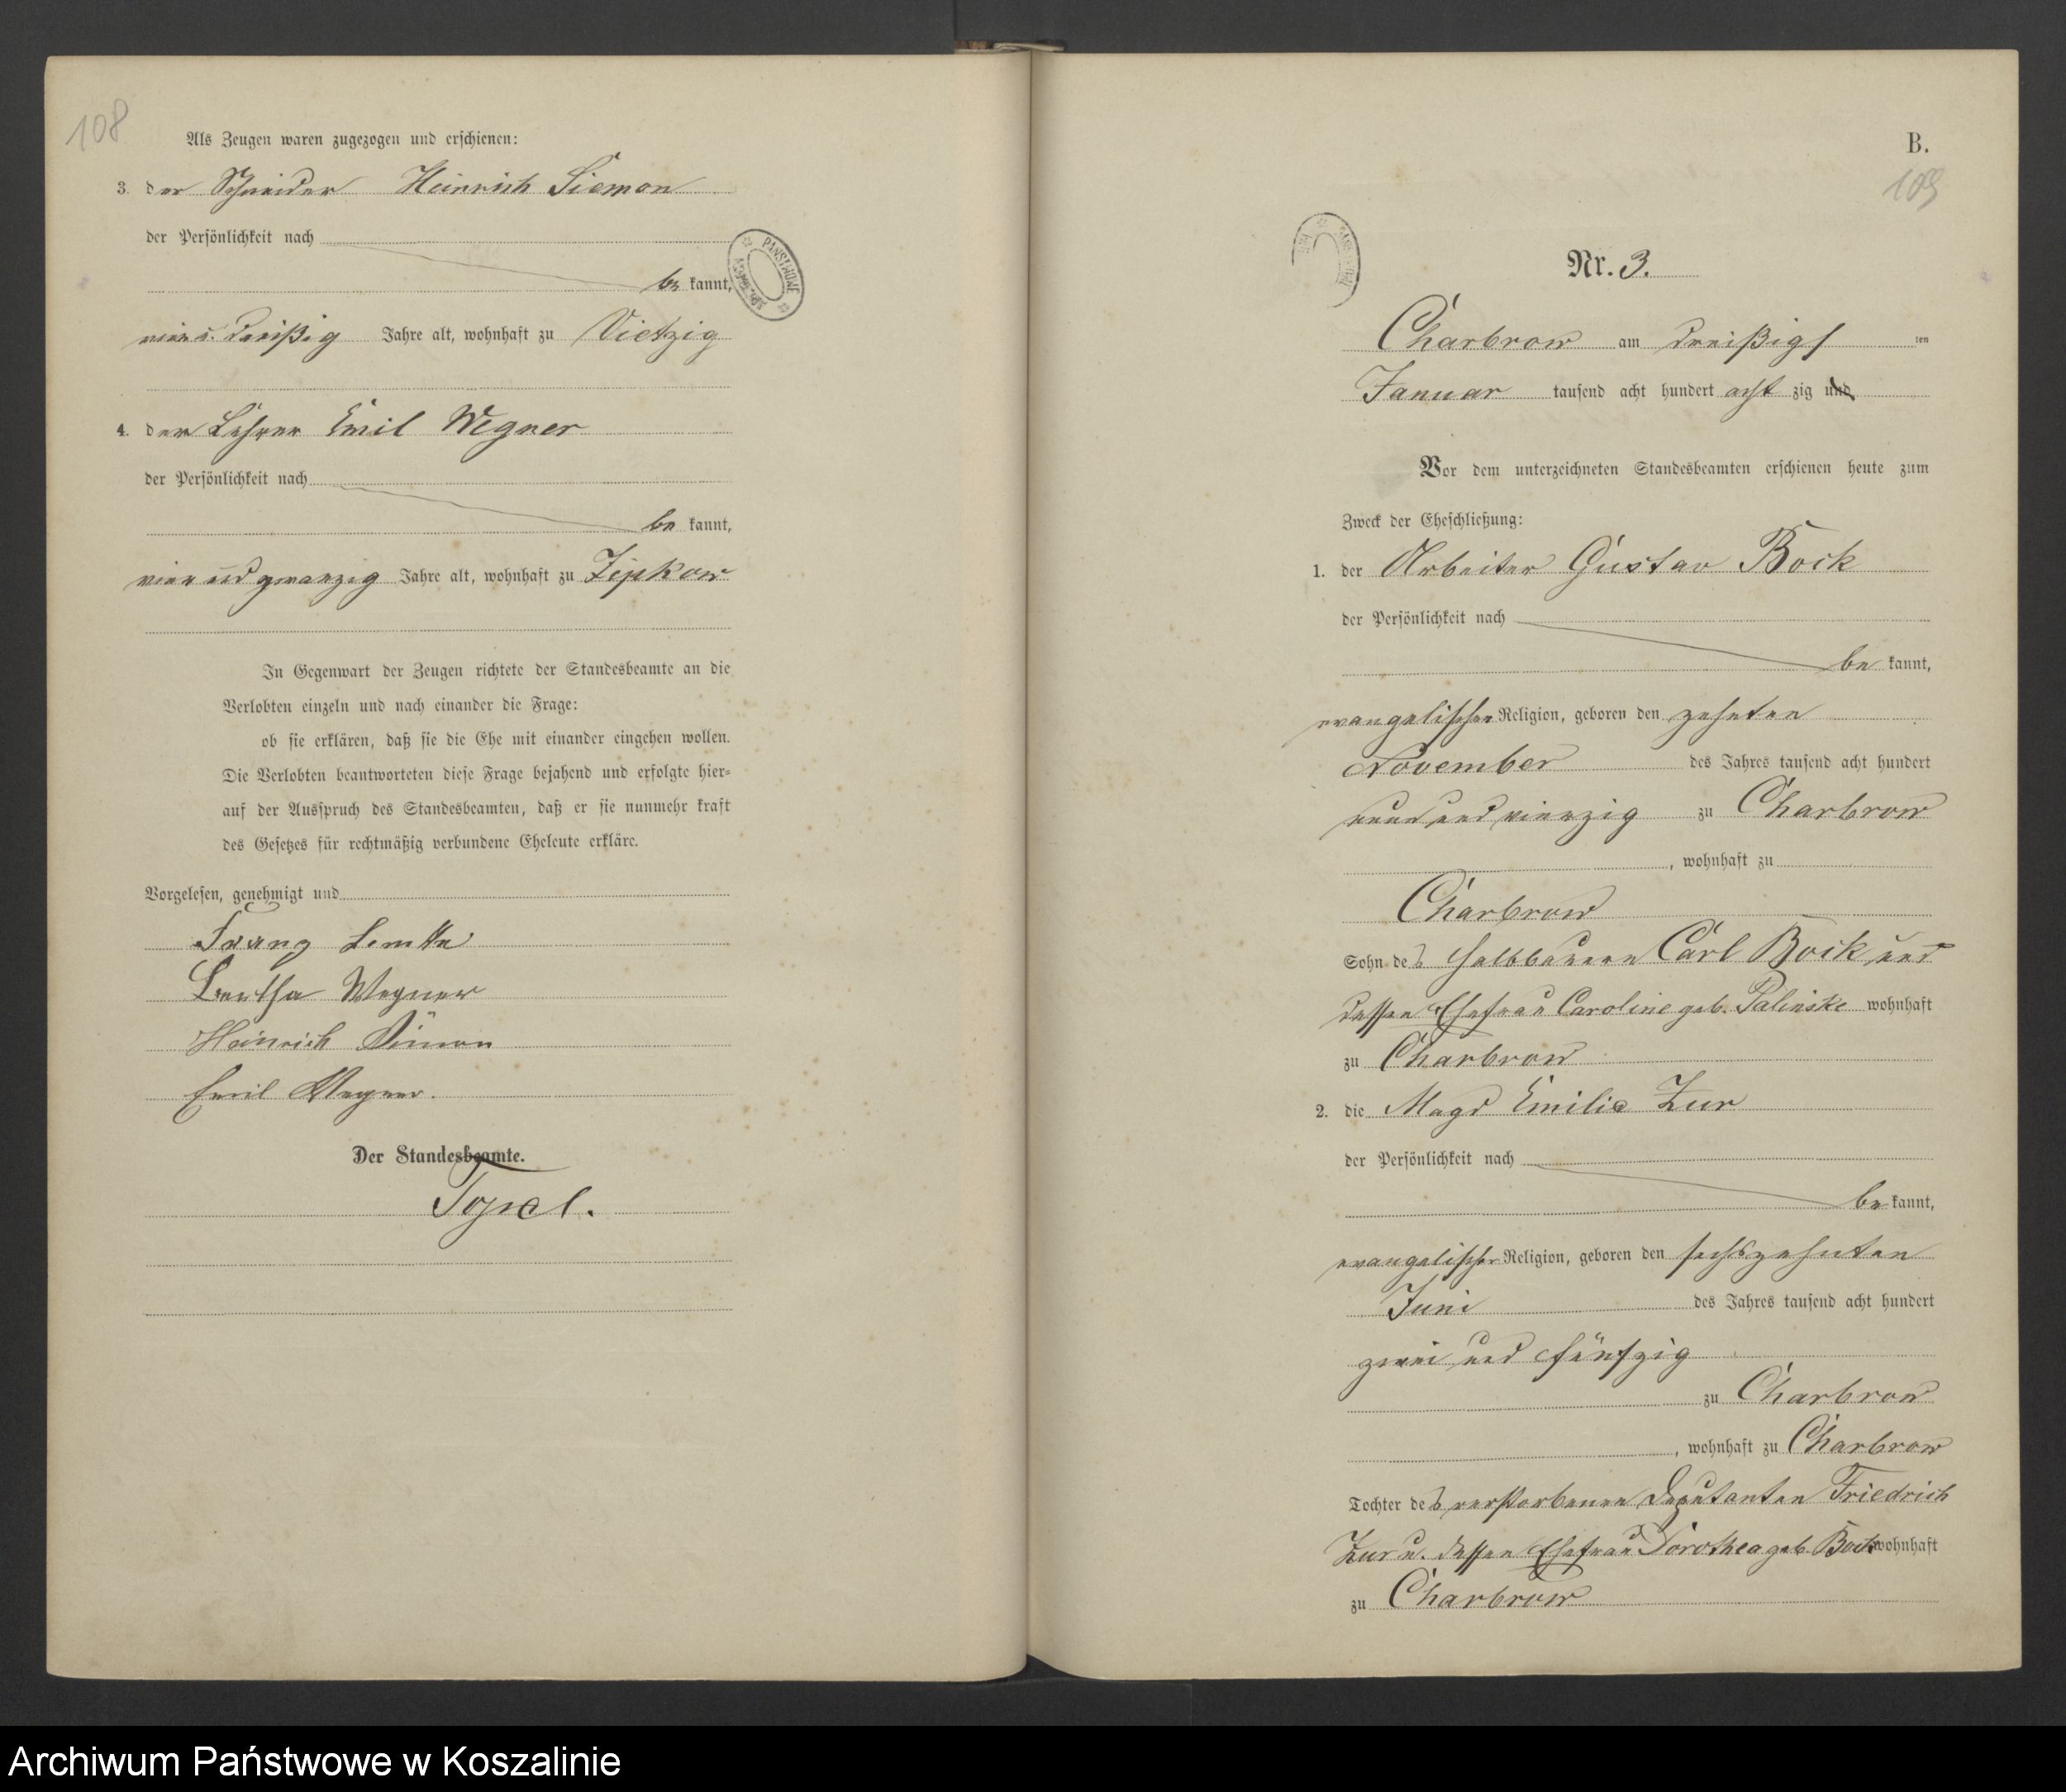 108
Als Zeugen waren zugezogen und erschienen:
3. der Schneider Heinrich Siemon
der Persönlichkeit nach
be kannt,
vier u. dreißig Jahre alt, wohnhaft zu Vietzig
4. der Lehrer Emil Wegner
der Persönlichkeit nach
be kannt,
vier und zwanzig Jahre alt, wohnhaft zu Zipkow
In Gegenwart der Zeugen richtete der Standesbeamte an die
Verlobten einzeln und nach einander die Frage:
ob sie erklären, daß sie die Ehe mit einander eingehen wollen.
Die Verlobten beantworteten diese Frage bejahend und erfolgte hier-
auf der Ausspruch des Standesbeamten, daß er sie nunmehr kraft
des Gesetzes für rechtmäßig verbundene Eheleute erkläre.
Vorgelesen, genehmigt und
Franz Lemke
Bertha Wegner
Heinrich Simon
Emil Wegner.
Der Standesbeamte.
PANSTWOWE
B.
109
Nr. 3.
Charbrow am dreißigs ten
Januar tausend acht hundert acht zig und
Vor dem unterzeichneten Standesbeamten erschienen heute zum
Zweck der Eheschließung:
1. der Arbeiter Gustav Bock
der Persönlichkeit nach
be kannt,
evangelischer Religion, geboren den zehnten
November des Jahres tausend acht hundert
neun und vierzig zu Charbrow
, wohnhaft zu
Charbrow
Sohn des Halbbauern Carl Bock und
dessen Ehefrau Caroline geb. Palinske wohnhaft
zu Charbrow
2. die Magd Emilie Zur
der Persönlichkeit nach
be kannt,
evangelischer Religion, geboren den sechszehnten
Juni des Jahres tausend acht hundert
zwei und fünfzig
zu Charbrow
, wohnhaft zu Charbrow
Tochter des verstorbenen Deputanten Friedrich
Zur u. dessen Ehefrau Dorothea geb. Bock wohnhaft
zu Charbrow
Archiwum Państwowe w Koszalinie